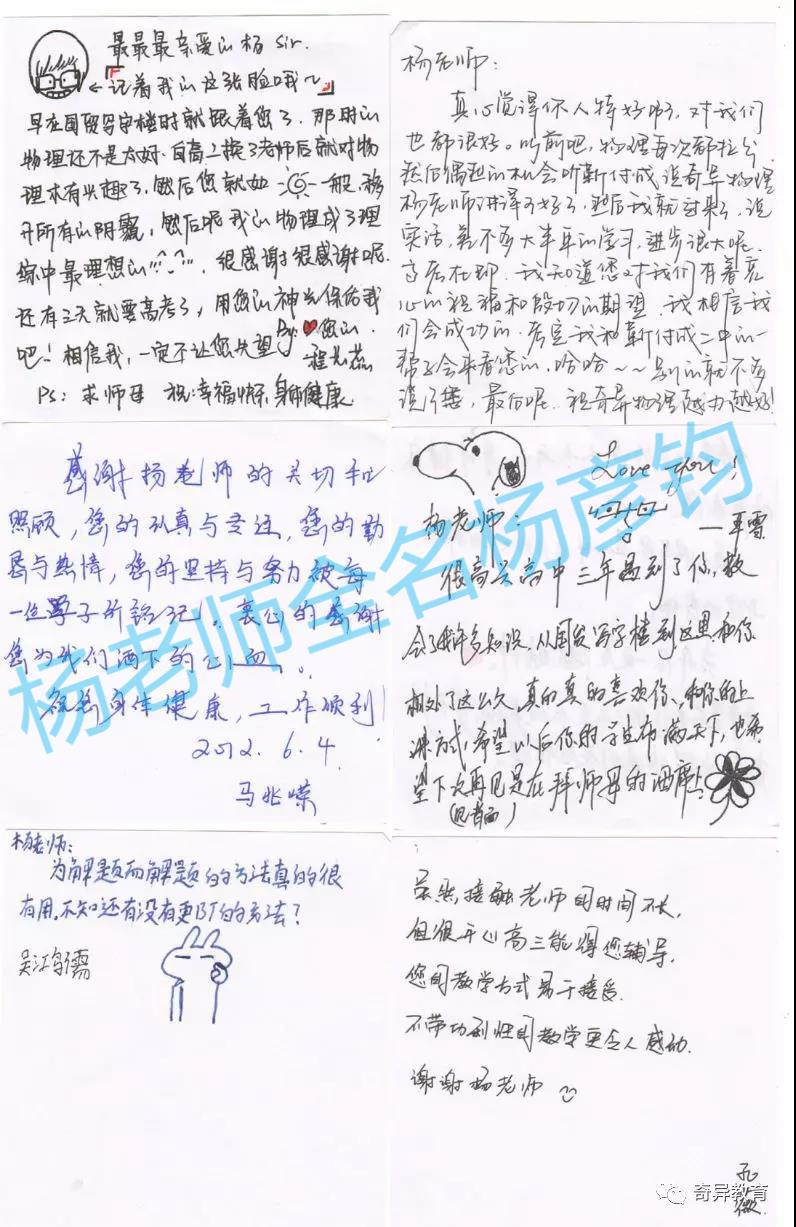 最最最亲爱的杨sir.
←记着我的这张脸哦~
早在国贸写字楼时就跟着您了. 那时的
物理还不是太好. 自高二换了老师后就对物
理木有兴趣了. 然后您就如 一般, 移
开所有的阴霾, 然后呢我的物理成了理
综中最理想的 . 很感谢很感谢呢.
还有三天就要高考了, 用您的神光保佑我
吧! 相信我, 一定不让您失望 By: ♥您的.
Ps: 求师母 祝:幸福快乐,身体健康.
杨老师:
真心觉得你人特好啊, 对我们
也都很好。以前吧, 物理每次都拉分
然后偶然的机会听靳付成说奇异物理
杨老师讲课可好了, 然后我就过来了, 说
实话, 差不多大半年的学习, 进步很大呢.
高考在即. 我知道您对我们有着衷
心的祝福和殷切的期望. 我相信我
们会成功的. 考完我和靳付成二中的一
帮子会来看您的, 哈哈~~别的就不多
说了喽, 最后呢. 祝奇异物理越办越好!
感谢杨老师的关切和
照顾, 您的认真与负责, 您的勤
恳与热情, 您的坚持与努力被每
一位学子所铭记。衷心的感谢
您为我们洒下的心血.
祝您身体健康, 工作顺利!
2012. 6. 4.
马兆嵘
Love you!
杨老师:
很高兴高中三年遇到了你, 教
会了我许多知识, 从国贸写字楼到这里和你
相处了这么久, 真的真的喜欢你, 和你的上
课方式, 希望以后你的学生布满天下, 也希
望下次再见是在拜师母的酒席上
(见背面)
杨老师:
为解题而解题的方法真的很
有用。不知还有没有更BT的方法?
虽然, 接触老师的时间不长,
但很开心高三能得您辅导,
您的教学方式易于接受.
不带功利性的教学更令人感动.
谢谢杨老师
孔
微
杨老师全名杨彦钧
奇异教育